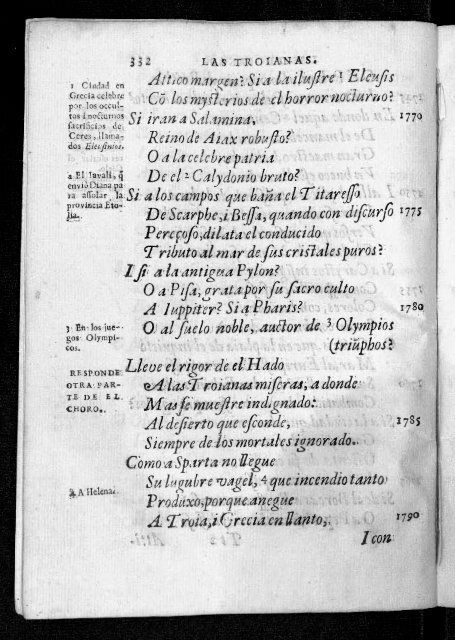 332 LAS TROIANAS.
Attico margen? Si a la ilustre ¹ Eleusis
Cõ los mysterios de el horror nocturno?
Si iran a Salamina, 1770
Reino de Aiax robusto?
O a la celebre patria
De el ² Calydonio bruto?
Si a los campos que baña el Titaresso
De Scarphe, i Bessa, quando con discurso 1775
Pereçoso, dilata el conducido
Tributo al mar de sus cristales puros?
I si a la antigua Pylon?
O a Pisa, grata por su sacro culto
A Iuppiter? Si a Pharis? 1780
O al suelo noble, auctor de ³ Olympios
(triũphos?
Lleve el rigor de el Hado
A las Troianas miseras, a donde
Mas se muestre indignado:
Al desierto que esconde, 1785
Siempre de los mortales ignorado.
Como a Sparta no llegue
Su lugubre vagel, ⁴ que incendio tanto
Produxo, porque anegue
A Troia, i Grecia en llanto, 1790
I con
1 Ciudad en
Grecia celebre
por los occul-
tos i nocturnos
sacrificios de
Ceres, llama-
dos Eleusinios.
2 El Iavali, q̃
enviò Diana pa
ra assolar la
provincia Eto-
lia.
3 En los jue-
gos Olympi-
cos.
RESPONDE
OTRA PAR-
TE DE EL
CHORO.
4 A Helena.